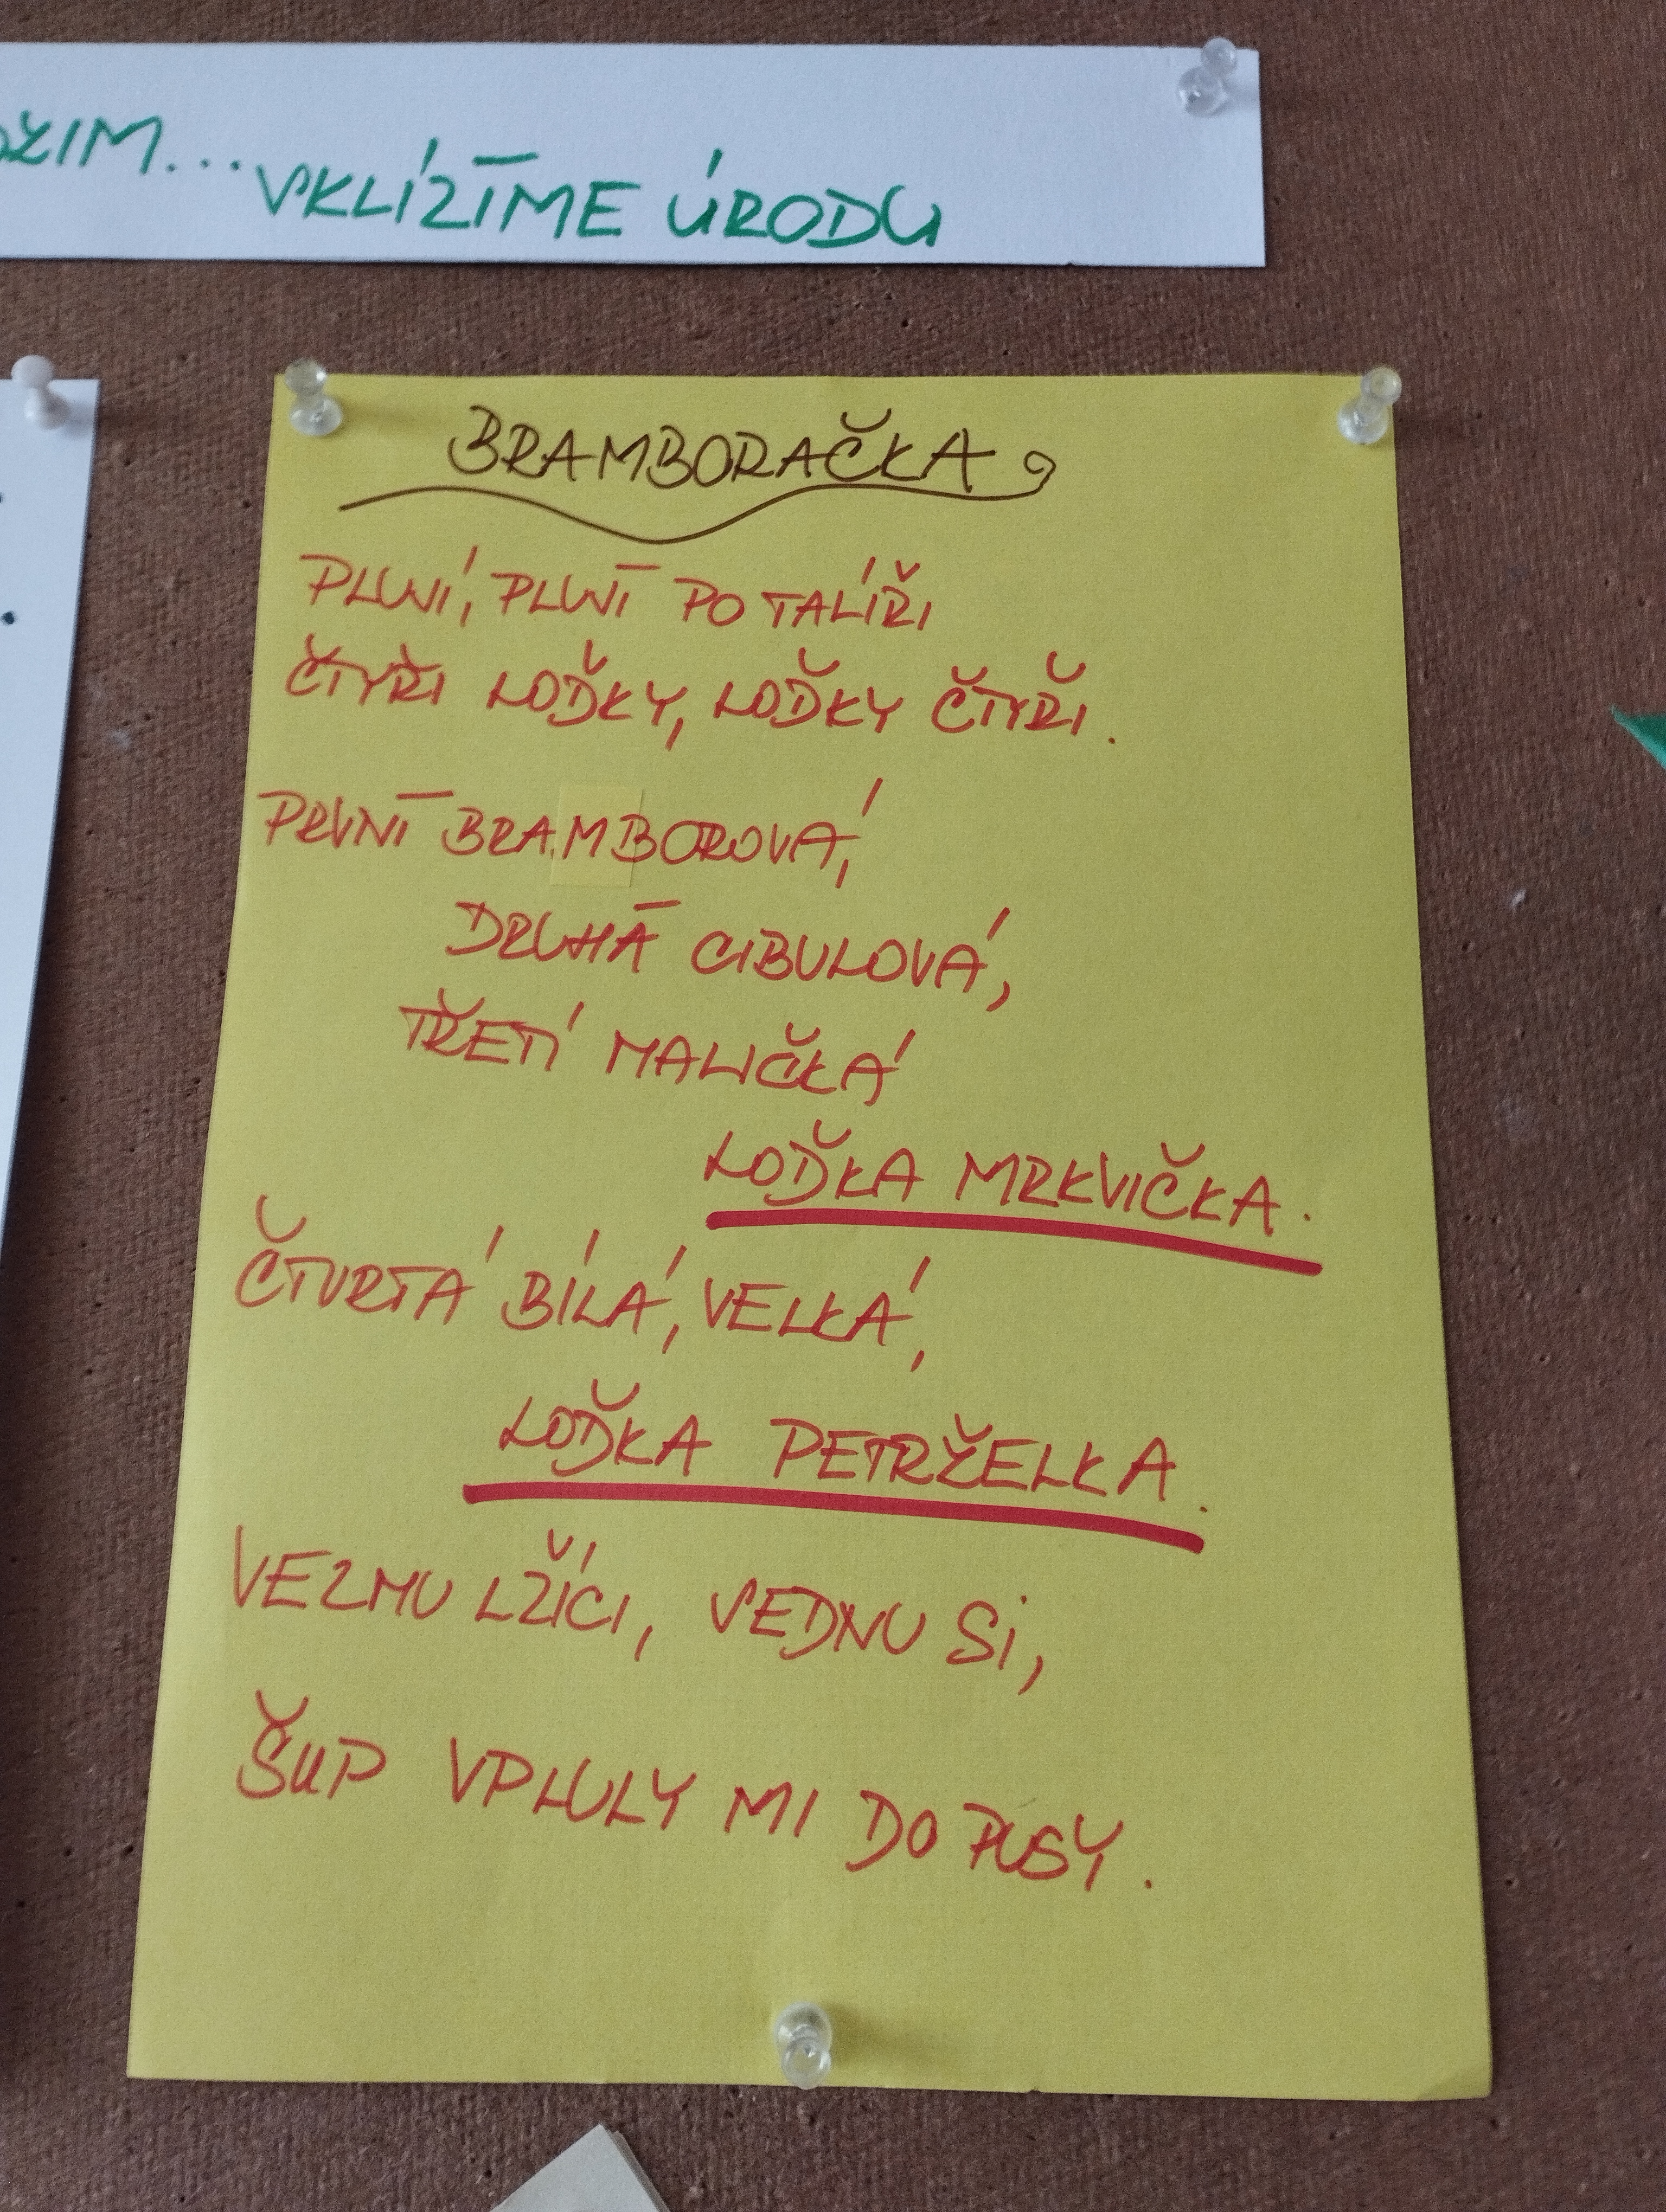 VKLÍZÍME ÚRODU
BRAMBORAČKA
PLUJÍ, PLUJÍ PO TALÍŘI
ČTYŘI LOĎKY, LOĎKY ČTYŘI.
PRVNÍ BRAMBOROVÁ,
DRUHÁ CIBULOVÁ,
TŘETÍ MALIČKÁ
LOĎKA MRKVIČKA.
ČTVRTÁ BÍLÁ, VELKÁ,
LOĎKA PETRŽELKA.
VEZMU LŽÍCI, SEDNU SI,
ŠUP VPLULY MI DO PUSY.